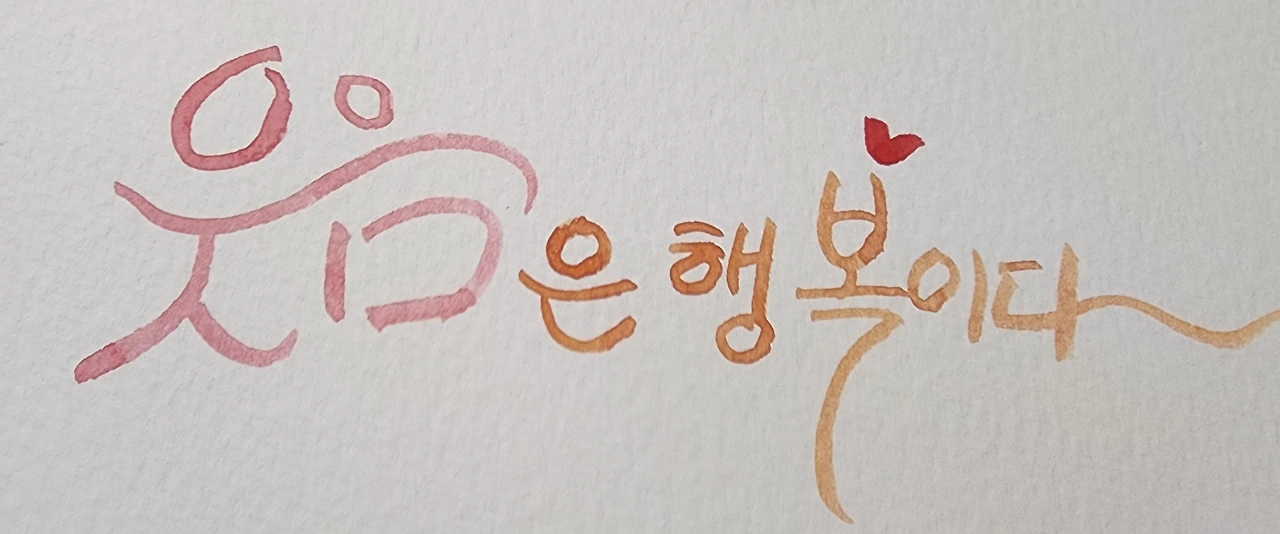 웃음은 행복이다